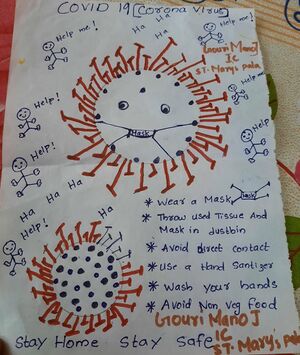 COVID 19 [Corona Virus]
Help me!
Ha
Ha
Ha
Help me!
Gouri Manoj
1C
ST. Mary's pala
Help!
Help!
Help!
Help!
Mask
Help!
Ha
Ha
Ha
Ha
Help!
* Wear a Mask
Mask
* Throw used Tissue And
Mask in dustbin
* Avoid direct contact
* Use a Hand Santizer
* Wash your hands
* Avoid Non Veg food
Gouri Manoj
1C
ST. Mary's Pala
Stay Home Stay Safe